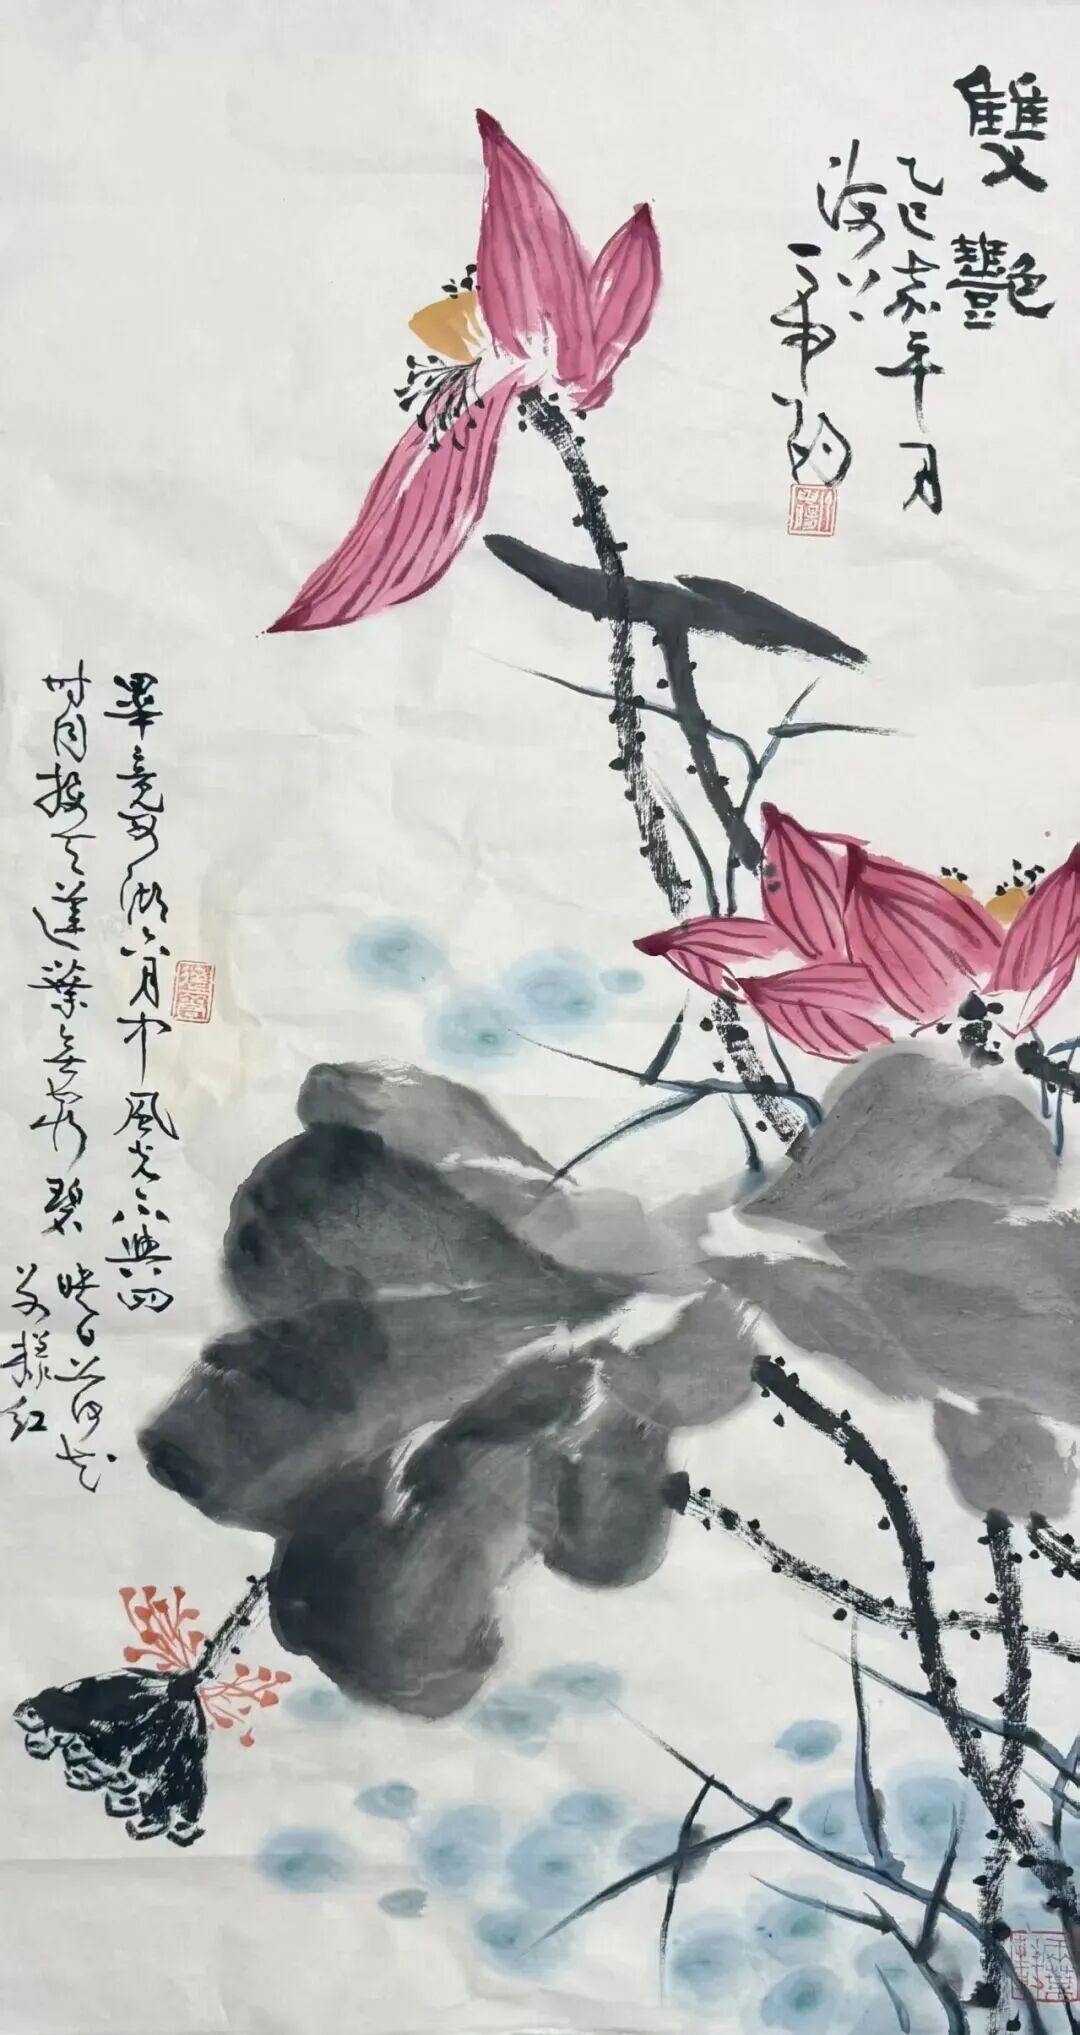 雙艷
乙巳嘉平月
一帆
畢竟西湖六月中風光不與四
時同接天蓮葉無窮碧映日荷花
別樣紅